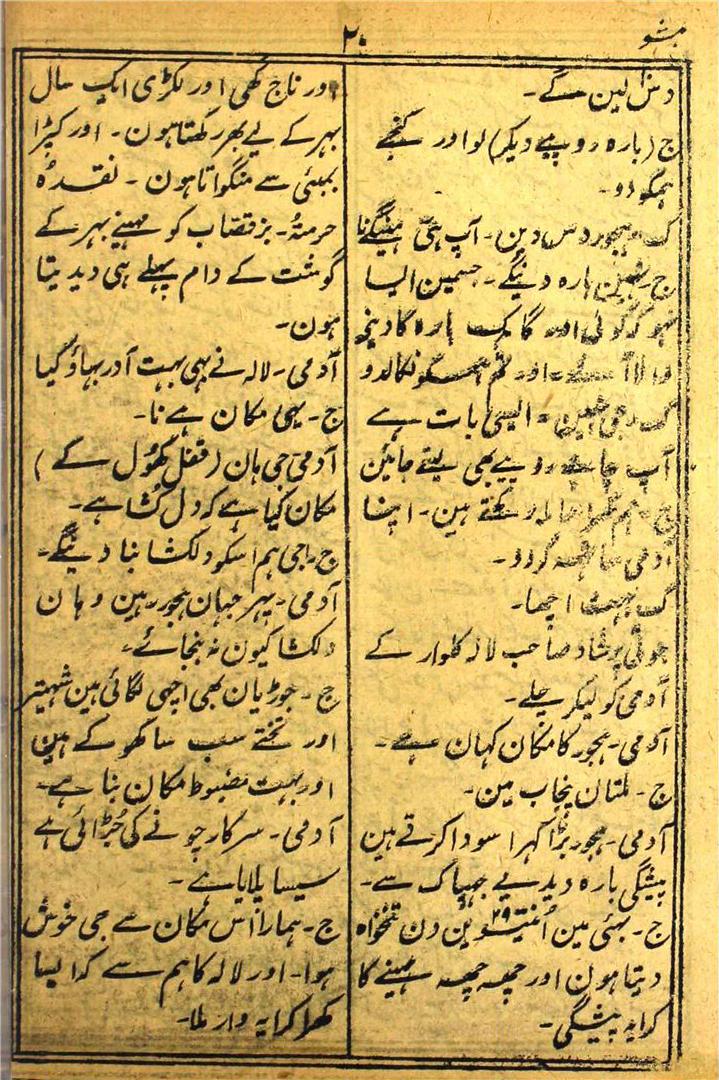 ہشو
۲۰
دس لین گے۔
ج (بارہ روپیے دیکر) لو اور کنجے
ہمکو دو۔
ک۔ ہجور دس دین۔ آپ ہی
ج۔ نہین بارہ دینگے۔ جسمین ایسا
نہو کہ کوئی اور گاہک بارہ کا دینے
والا آ اور تم ہمکو نکالدو
ک۔ اجی نہین۔ ایسی بات ہے
آپ چاہے روپیے بھی لیتے جائین
ج۔ ہم رکھتے ہین۔ اپنا
آدمی ساتھ کردو۔
ک بہت اچھا۔
جوتی پرشاد صاحب لالہ کلوار کے
آدمی کو لیکر چلے۔
آدمی۔ ہجور کا مکان کہان ہے۔
ج۔ ملتان پنجاب مین۔
آدمی۔ ہجور بڑا کہرا سودا کرتے ہین
پیشگی بارہ دیدیے جھپاک سے۔
ج۔ بھئی مین اُنتیسوین ۲۹ دن تنخواہ
دیتا ہون اور چھہ چھہ مہینے کا
کرایہ پیشگی۔
اور ناج گھی اور لکڑی ایک سال
بہر کے لیے بھر رکھتا ہون۔ اور کپڑا
بمبئی سے منگواتا ہون۔ نقدہ
حرمتہ۔ بزقصاب کو مہینے بہر کے
گوشت کے دام پہلے ہی دیدیتا
ہون۔
آدمی۔ لالہ نے بہی بہت آدر بہاؤ کیا
ج۔ یہی مکان ہے نا۔
آدمی جی ہان (قفل کھول کے)
مکان کیا ہے کہ دل کشا ہے۔
ج۔ اجی ہم اسکو دلکشا بنا دینگے۔
آدمی۔ پہر جہان ہجور رہین وہان
دلکشا کیون نہ بنجائے۔
ج۔ جوڑیان بھی اچھی لگائی ہین شہتیر
اور تختے سب ساکھو کے ہین
اور بہت مضبوط مکان بنا ہے۔
آدمی۔ سرکار چونے کی جُڑائی ہے
سیسا پلایا ہے۔
ج۔ ہمارا اس مکان سے جی خوش
ہوا۔ اور لالہ کا ہم سے کہ ایسا
کھرا کرایہ دار ملا۔